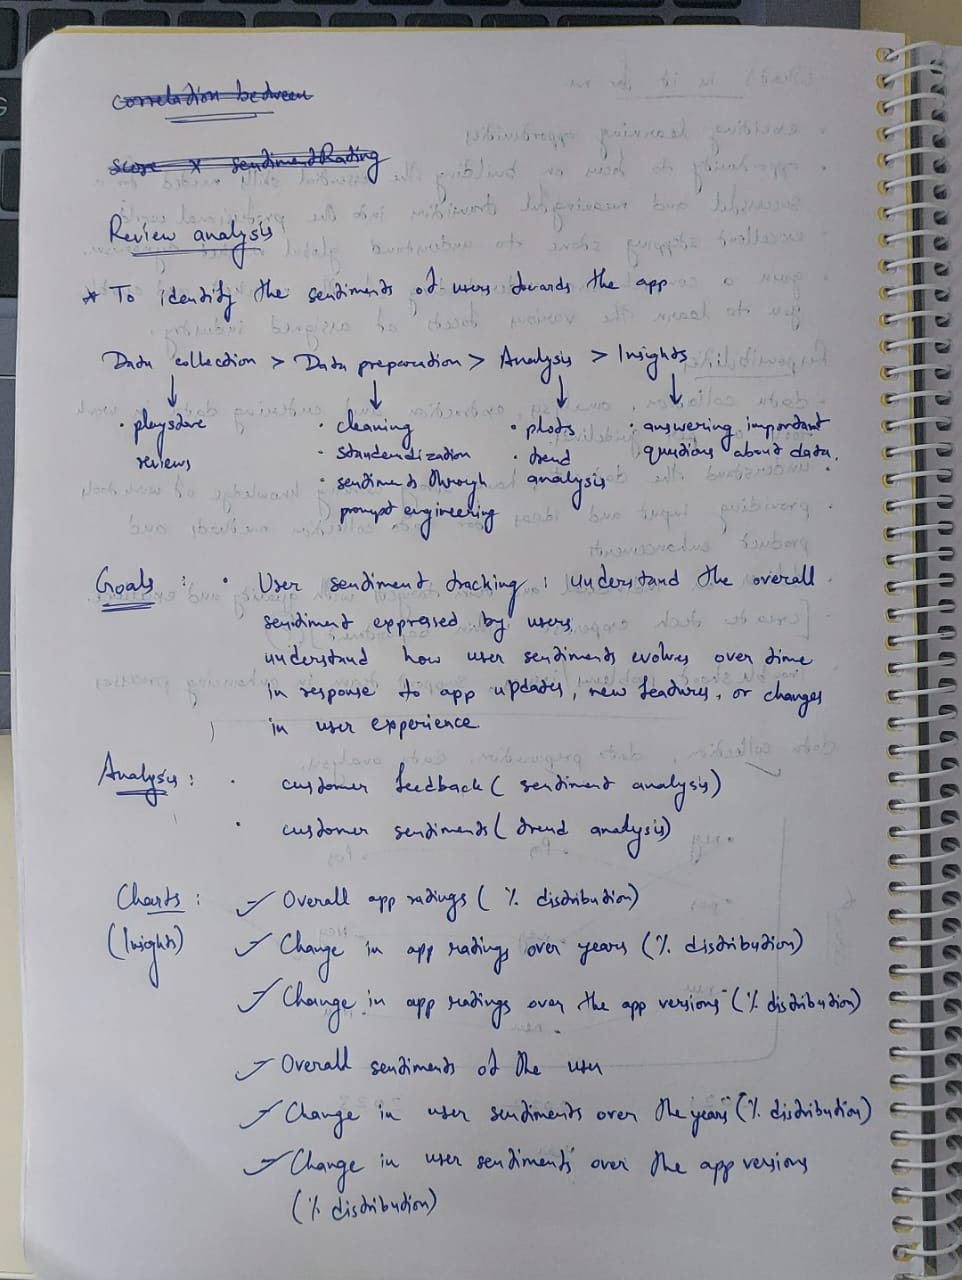 correlation between
score x sentimentRating
Review analysis
* To identify the sentiments of users towards the app
Data collection > Data preparation > Analysis > Insights
· playstore reviews
· cleaning
· standardization
· sentiments through prompt engineering
· plots
· trend analysis
· answering important questions about data.
Goals : · User sentiment tracking : understand the overall
sentiment expressed by users,
understand how user sentiments evolves over time
in response to app updates, new features, or changes
in user experience
Analysis : · customer feedback ( sentiment analysis)
· customer sentiments ( trend analysis)
Charts : ✓ Overall app ratings ( % distribution)
(Insights) ✓ Change in app ratings over years (% distribution)
✓ Change in app ratings over the app versions (% distribution)
✓ Overall sentiments of the user
✓ Change in user sentiments over the years (% distribution)
✓ Change in user sentiments over the app versions
(% distribution)